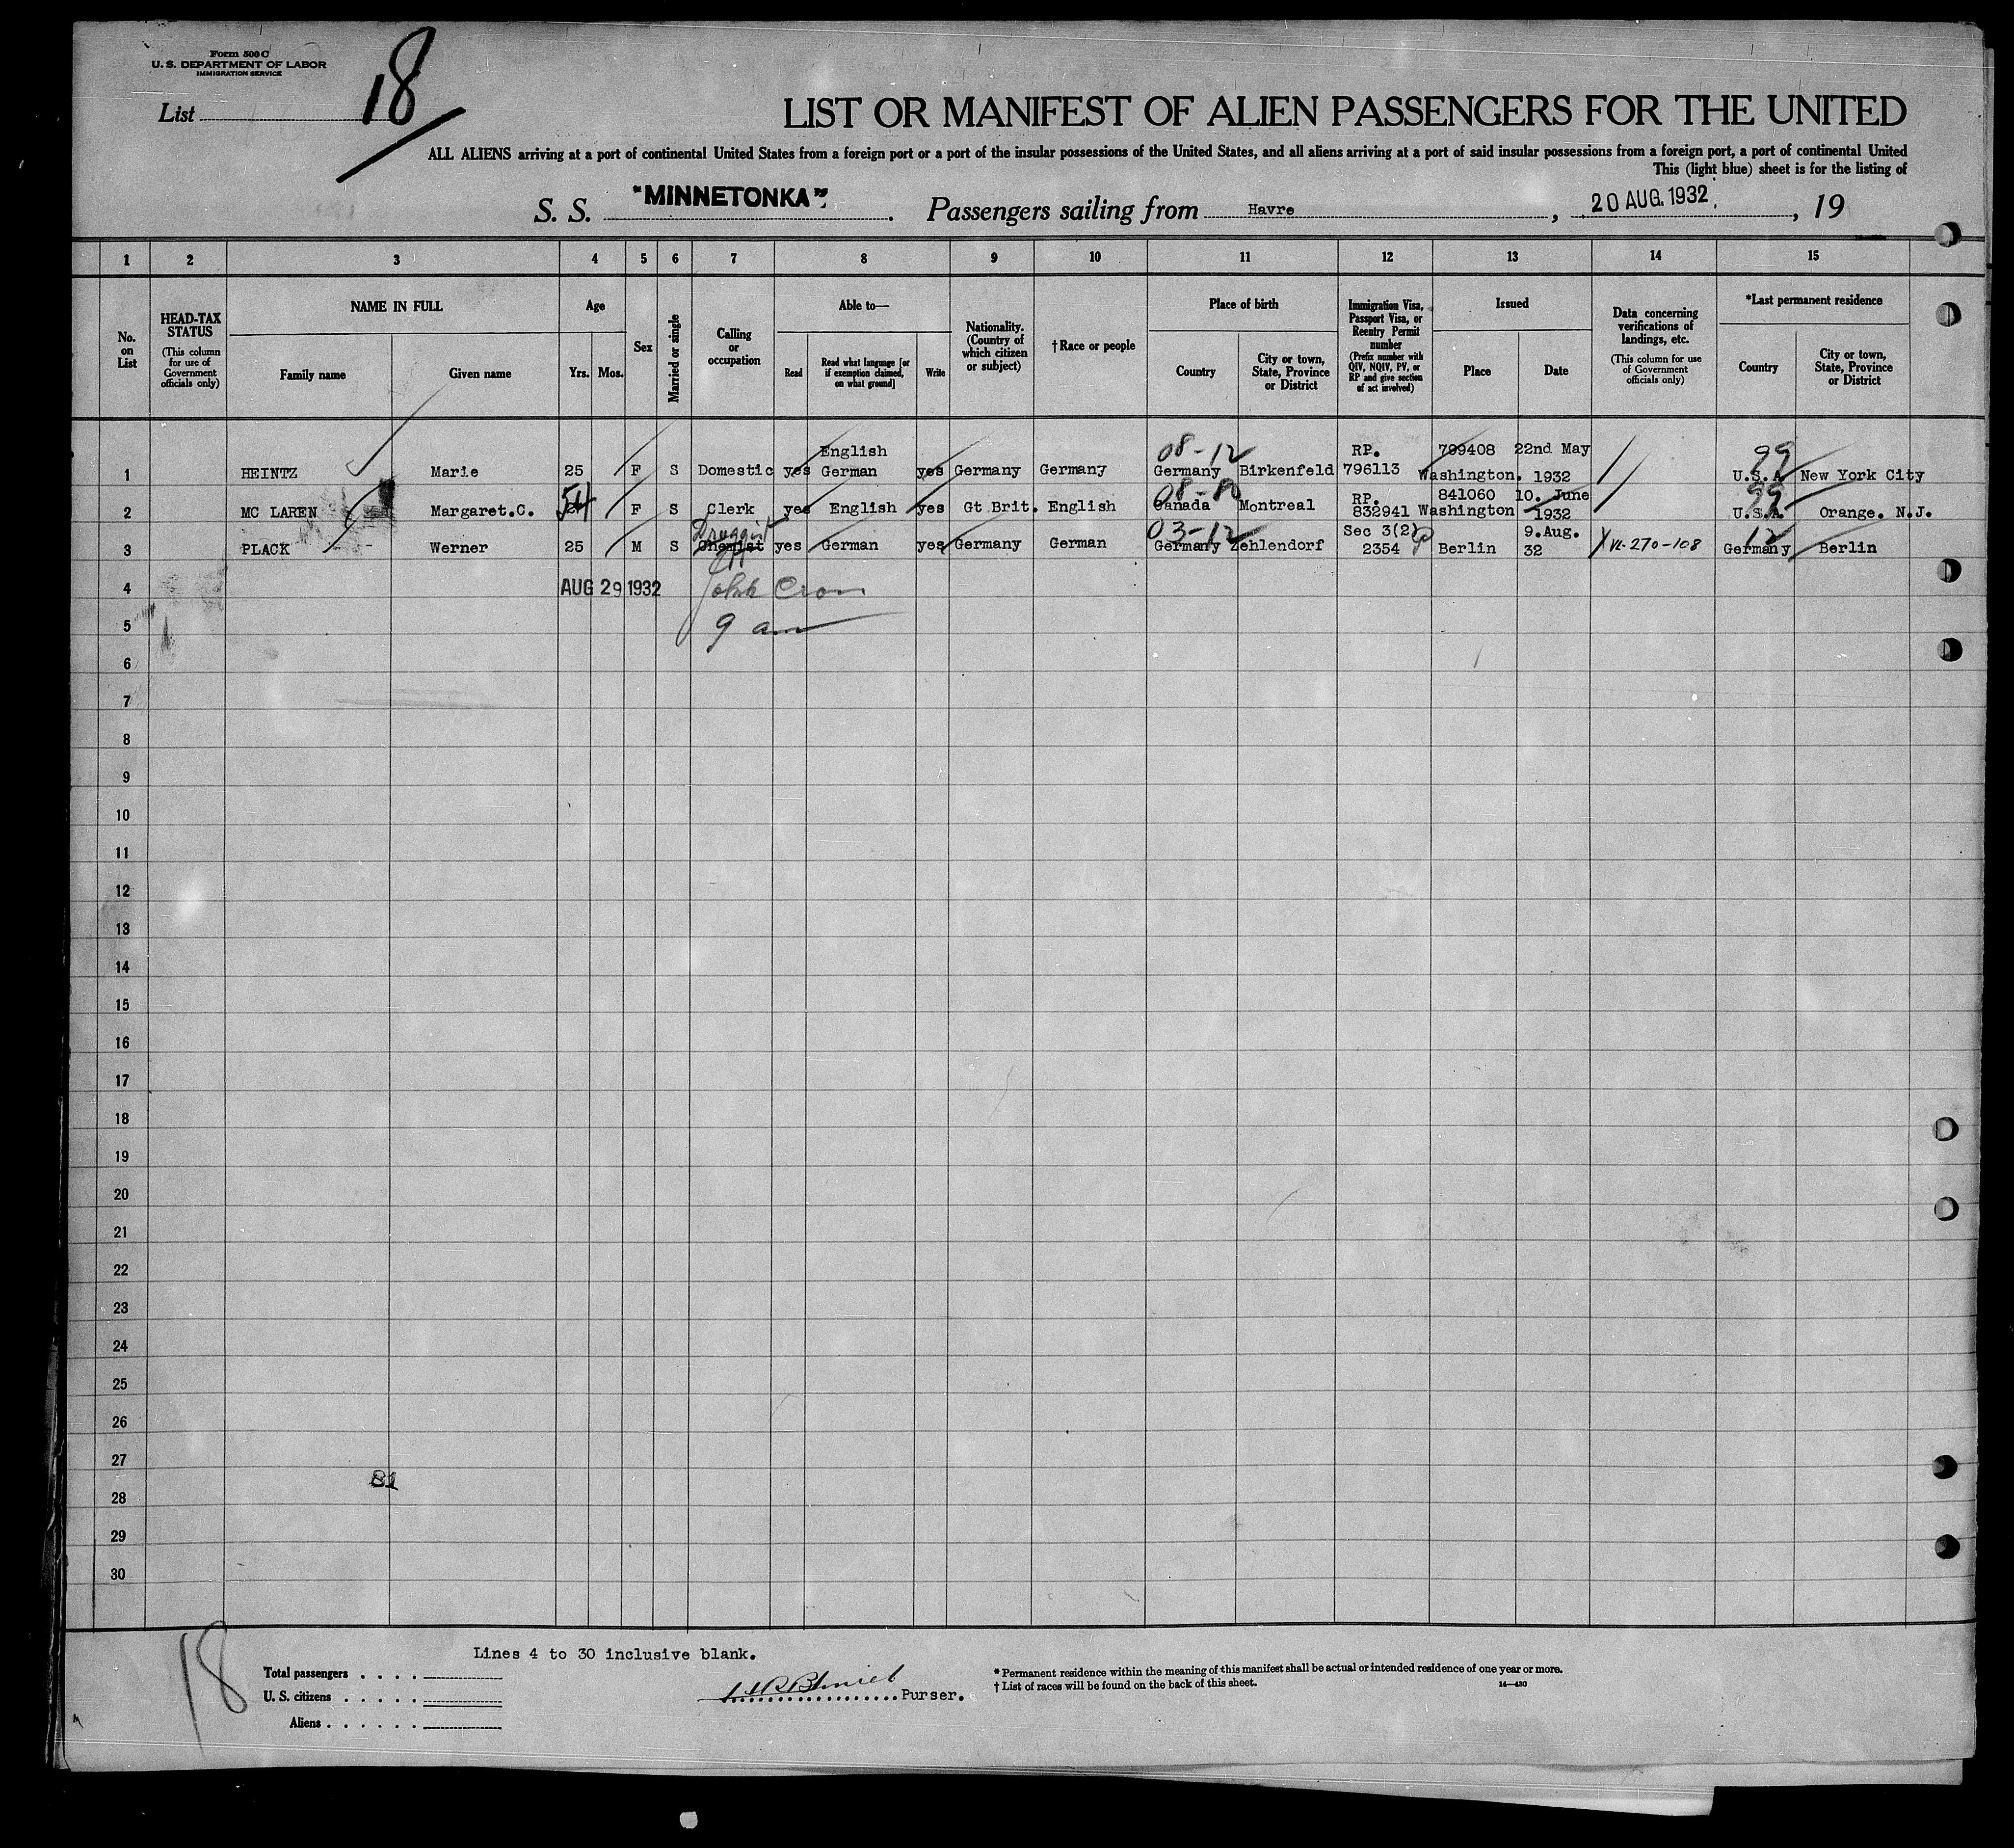 Form 500 C
U. S. DEPARTMENT OF LABOR
IMMIGRATION SERVICE
List 18
LIST OR MANIFEST OF ALIEN PASSENGERS FOR THE UNITED
ALL ALIENS arriving at a port of continental United States from a foreign port or a port of the insular possessions of the United States, and all aliens arriving at a port of said insular possessions from a foreign port, a port of continental United
This (light blue) sheet is for the listing of
S. S. "MINNETONKA". Passengers sailing from Havre, 20 AUG. 1932, 19
1 2 3 4 5 6 7 8 9 10 11 12 13 14 15
No. on List
HEAD-TAX STATUS
(This column for use of Government officials only)
NAME IN FULL
Family name
Given name
Age
Yrs. Mos.
Sex
Married or single
Calling or occupation
Able to—
Read
Read what language [or if exemption claimed, on what ground]
Write
Nationality. (Country of which citizen or subject)
† Race or people
Place of birth
Country
City or town, State, Province or District
Immigration Visa, Passport Visa, or Reentry Permit number
(Prefix number with QIV, NQIV, PV, or RP and give section of act involved)
Issued
Place
Date
Data concerning verifications of landings, etc.
(This column for use of Government officials only)
*Last permanent residence
Country
City or town, State, Province or District
English 08-12 RP. 799408 22nd May 99
1 HEINTZ Marie 25 F S Domestic yes German yes Germany Germany Germany Birkenfeld 796113 Washington. 1932 U.S.A New York City
08-80 RP. 841060 10. June 99
2 MC LAREN Margaret.C. 54 F S Clerk yes English yes Gt Brit. English Canada Montreal 832941 Washington 1932 U.S.A. Orange. N.J.
Druggist 03-12 Sec 3(2) 9.Aug. 12
3 PLACK Werner 25 M S Chemist yes German yes Germany German Germany Zehlendorf 2354 Berlin 32 VL-270-108 Germany Berlin
4 AUG 29 1932 John Cron
5 9 am
6
7
8
9
10
11
12
13
14
15
16
17
18
19
20
21
22
23
24
25
26
27
81
28
29
30
18
Lines 4 to 30 inclusive blank.
Total passengers . . . .
U. S. citizens . . . . .
Aliens . . . . . .
Purser.
* Permanent residence within the meaning of this manifest shall be actual or intended residence of one year or more.
† List of races will be found on the back of this sheet.
14—430